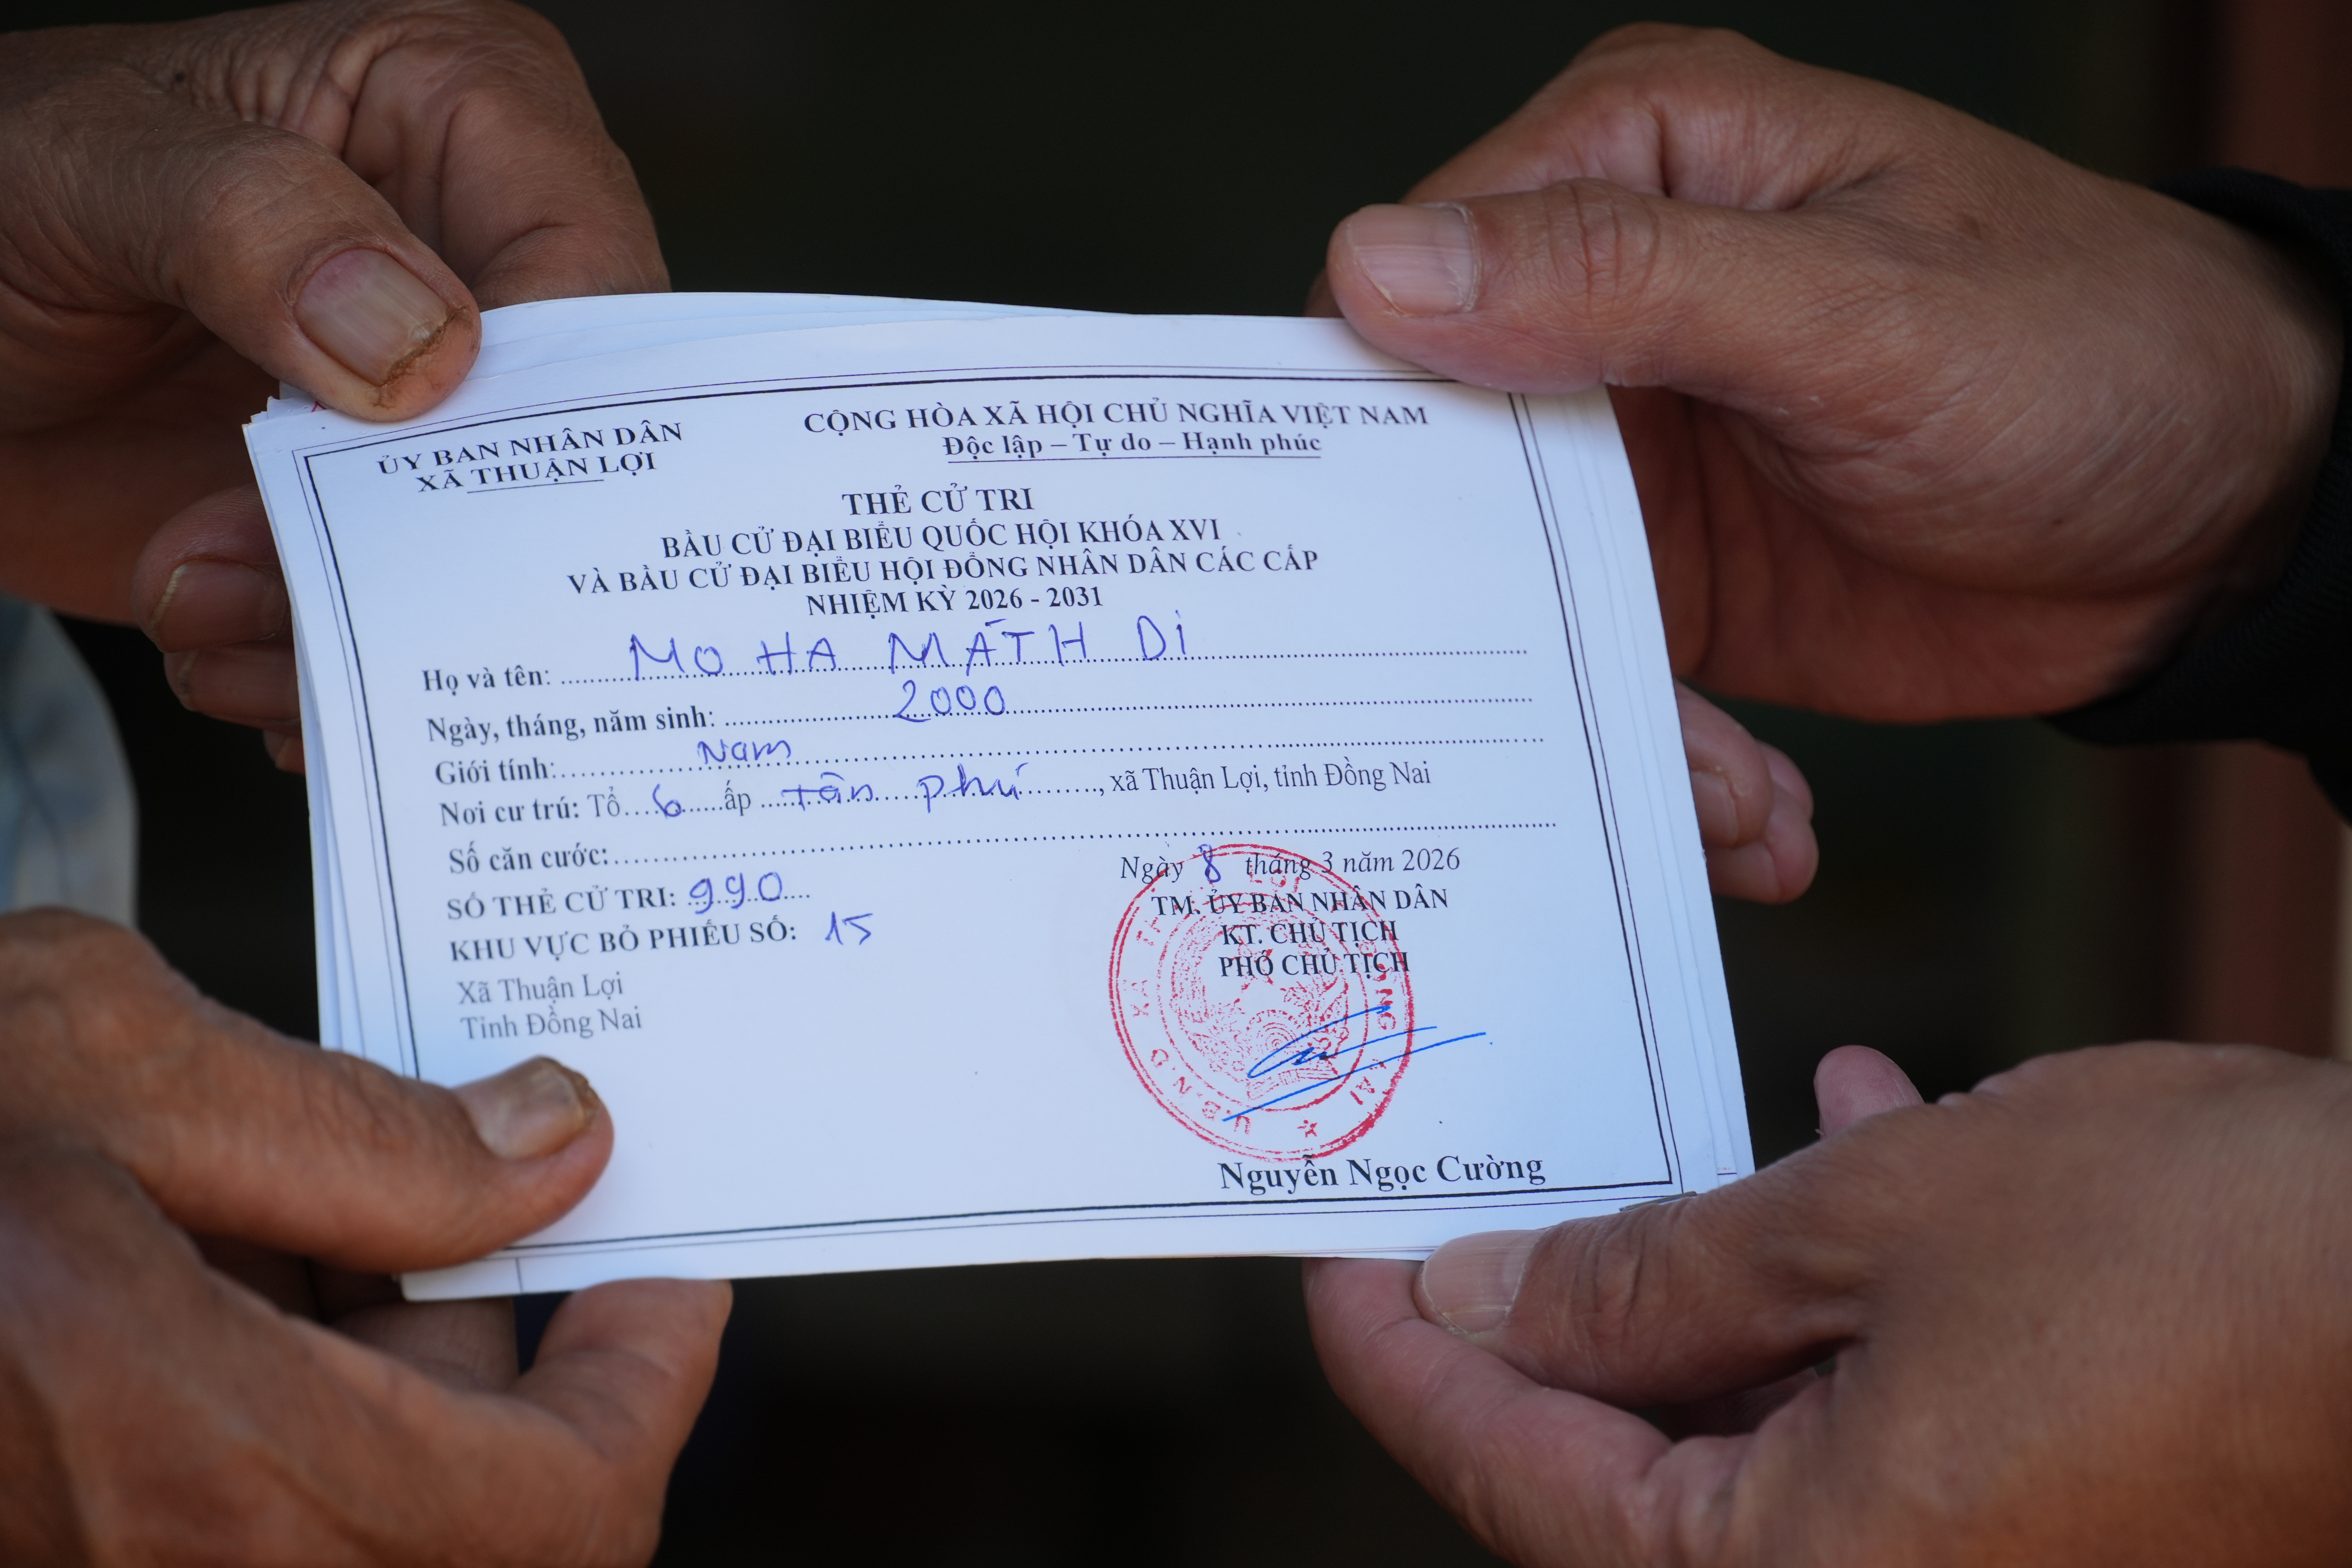 ỦY BAN NHÂN DÂN
XÃ THUẬN LỢI
CỘNG HÒA XÃ HỘI CHỦ NGHĨA VIỆT NAM
Độc lập – Tự do – Hạnh phúc
THẺ CỬ TRI
BẦU CỬ ĐẠI BIỂU QUỐC HỘI KHÓA XVI
VÀ BẦU CỬ ĐẠI BIỂU HỘI ĐỒNG NHÂN DÂN CÁC CẤP
NHIỆM KỲ 2026 - 2031
Họ và tên: MO HA MÁTH Di
Ngày, tháng, năm sinh: 2000
Giới tính: Nam
Nơi cư trú: Tổ 6 ấp tân phú, xã Thuận Lợi, tỉnh Đồng Nai
Số căn cước:
SỐ THẺ CỬ TRI: 990
KHU VỰC BỎ PHIẾU SỐ: 15
Xã Thuận Lợi
Tỉnh Đồng Nai
Ngày 8 tháng 3 năm 2026
TM. ỦY BAN NHÂN DÂN
KT. CHỦ TỊCH
PHÓ CHỦ TỊCH
U.B.N.D XÃ
Nguyễn Ngọc Cường